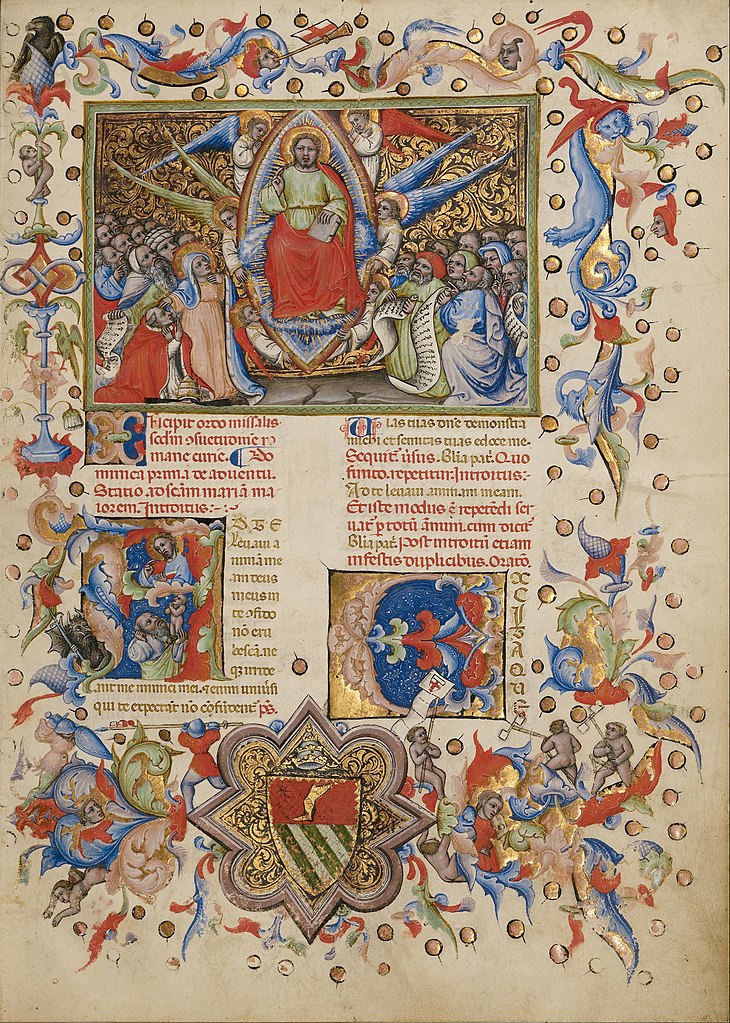 Incipit ordo missalis
scdm ɔsuetudinē ro
mane curie. Do
minica prima de aduentu.
Statio ad scam mariā ma
iorem. Introitus:
AD TE
leuaui a
nimā me
am deus
meus in
te ɔfido
nō eru
bescā. ne
qꝫ irride
ant me inimici mei. etenim uniūsi
qui te expectāt nō cōfūdent̄. ps.
Vias tuas dn̄e demonstra
michi et semitas tuas edoce me.
Sequit̄ ūsus. Glīa pat̄. Quo
finito. repetitur Introitus:
Ad te leuaui animam meam.
Et iste modus ē repetēdi ser
uat̄ p totū annum. cum dicit̄
Glīa pat̄. Post introitū etiam
in festis duplicibus. Orato.
EXCITA QUS